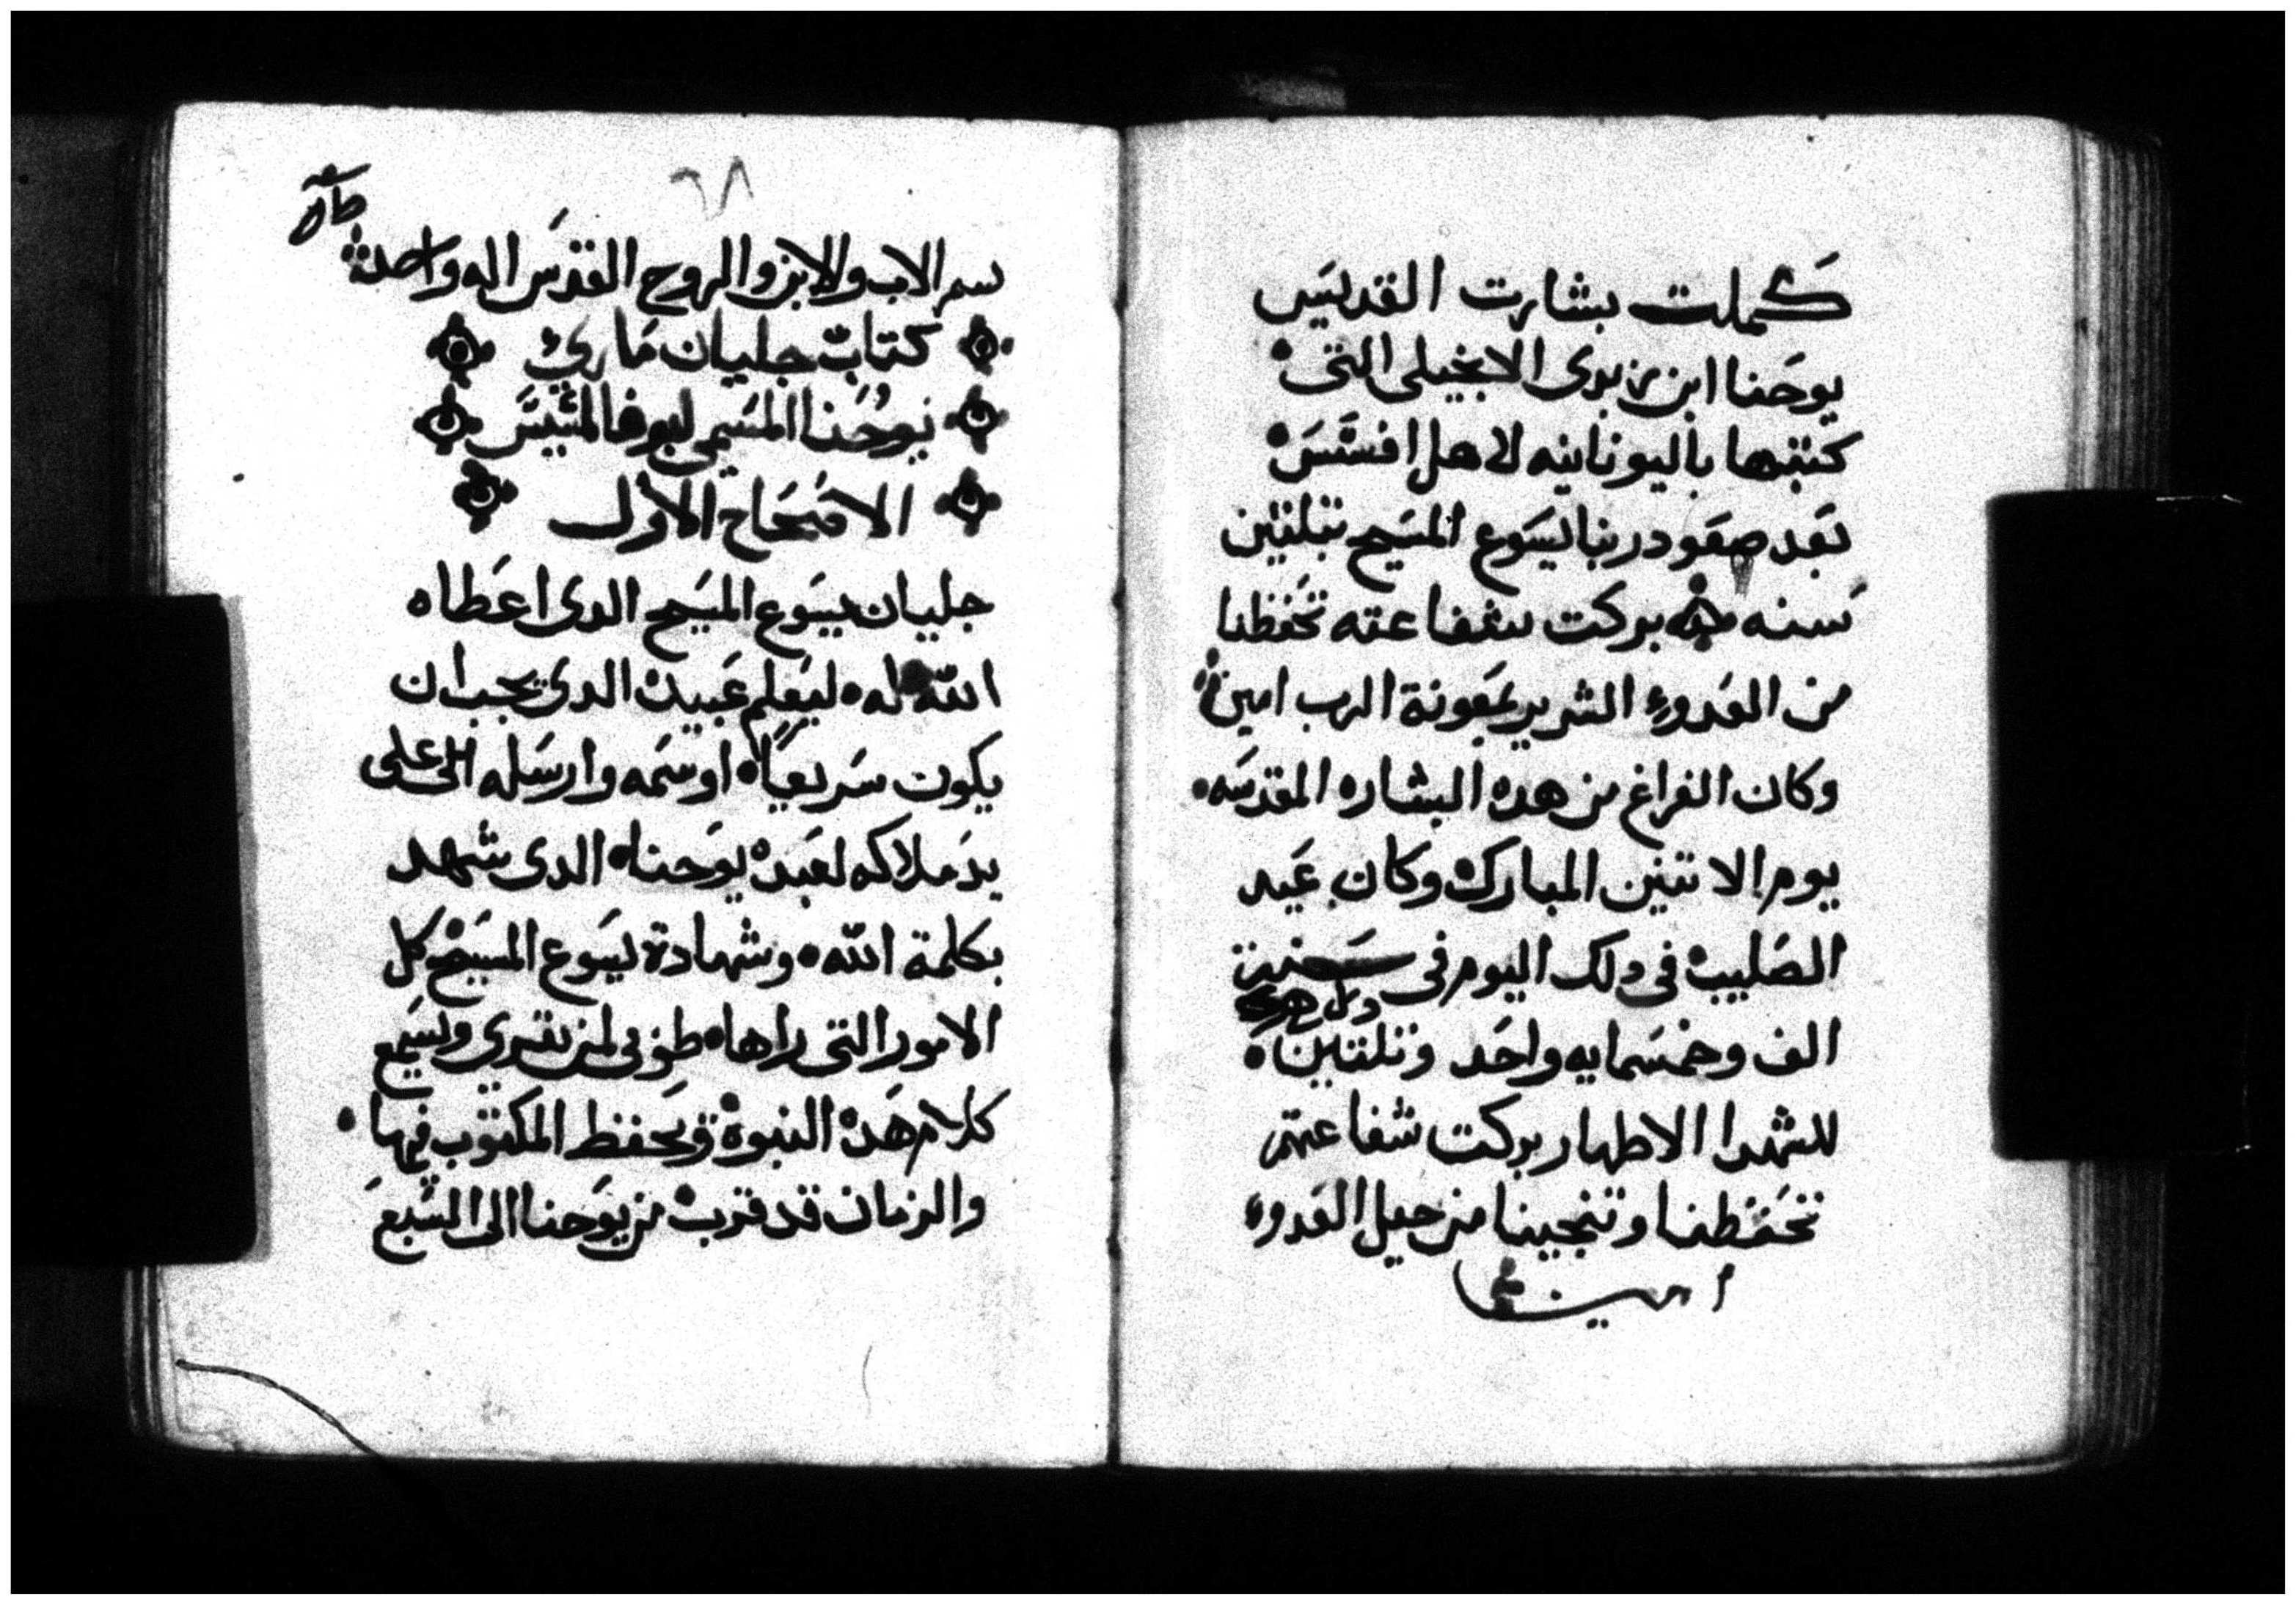 كملت بشارت القديس
يوحنا ابن زبدى الانجيلى التى
كتبها باليونانيه لاهل افسس
بعد صعود ربنا يسوع المسيح بتلتين
سنه بركت شفاعته تحفظنا
من العدو الشرير بمعونة الرب امين
وكان الفراغ من هده البشاره المقدسه
يوم الاتنين المبارك وكان عيد
الصليب فى دلك اليوم فى سنة
الف وخمسمايه واحد وتلتين
للشهدا الاطهار بركت شفاعتهم
تحفظنا وتنجينا من حيل العدو
امين
٦٨
بسم الاب والابن والروح القدس اله واحد
كتاب جليان مارى
يوحنا المسمى
الافتتاح الاول
جليان يسوع المسيح الدى اعطاه
الله له ليعلم عبيده الدى يجب ان
يكون سريعًا اوسمه وارسله على
يد ملاكه لعبده يوحنا الدى شهد
بكلمة الله وشهادة يسوع المسيح كل
الامور التى راها طوبى لمن يقرى ويسمع
كلام هده النبوة ويحفظ المكتوب فيها
والزمان قد قرب من يوحنا الى السبع